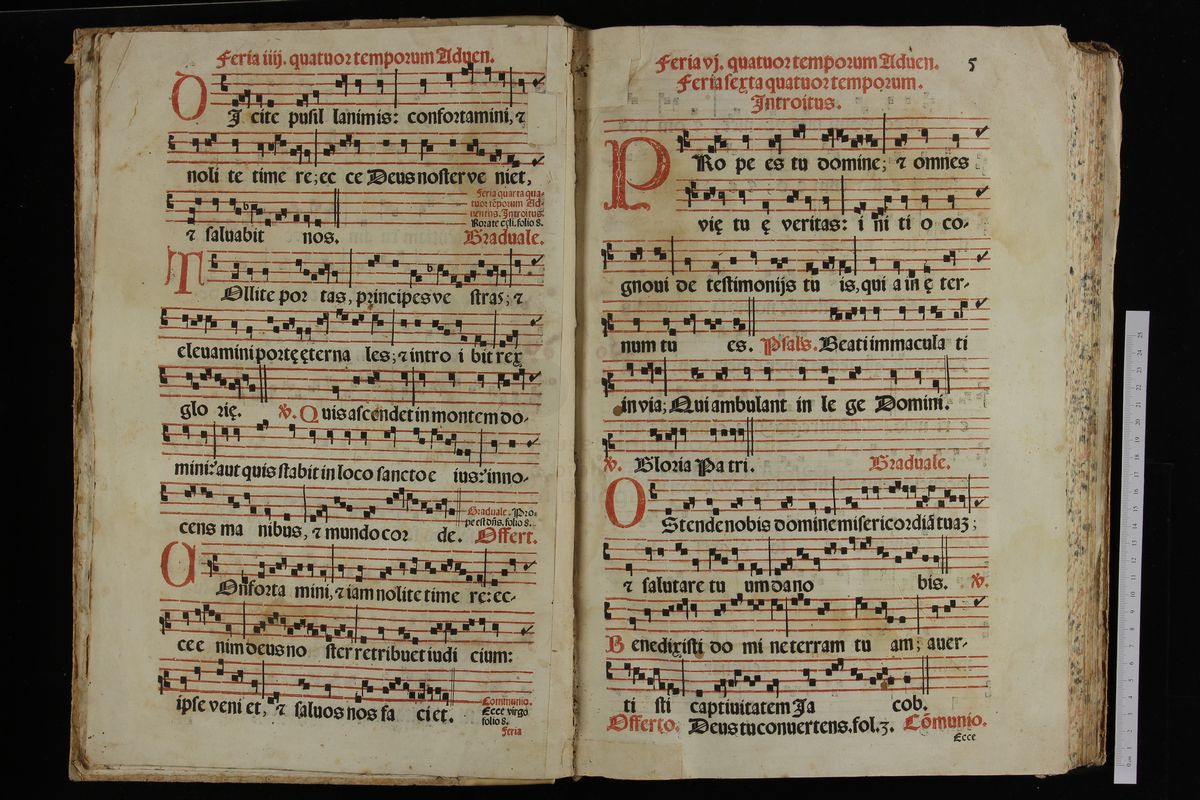 Feria iiij. quatuor temporum Aduen.
DIcite pusil lanimis: confortamini, ⁊
noli te time re; ec ce Deus noster ve niet,
Feria quarta qua-
tuor tēporum Ad-
uentus. Introitus.
Rorate cęli. folio 8.
⁊ saluabit nos. Graduale.
TOllite por tas, principes ve stras; ⁊
eleuamini portę ęterna les; ⁊ intro i bit rex
glo rię. ℣. Quis ascendet in montem do-
mini: aut quis stabit in loco sancto e ius: inno-
Graduale. Pro-
pe est dn̄s. folio 8.
cens ma nibus, ⁊ mundo cor de. Offert.
COnforta mini, ⁊ iam nolite time re: ec-
ce e nim deus no ster retribuet iudi cium:
ipse veni et, ⁊ saluos nos fa ci et.
Communio.
Ecce virgo
folio 8.
Feria
Feria vj. quatuor temporum Aduen. 5
Feria sexta quatuor temporum.
Introitus.
PRo pe es tu domine; ⁊ omnes
vię tu ę veritas: i ni ti o co-
gnoui de testimonijs tu is, qui a in ę ter-
num tu es. Psal's. Beati immacula ti
in via; Qui ambulant in le ge Domini.
℣. Gloria Pa tri. Graduale.
OStende nobis domine misericordiā tuaȝ;
⁊ salutare tu um da no bis. ℣.
Benedixisti do mi ne terram tu am; auer-
ti sti captiuitatem Ja cob.
Offerto. Deus tu conuertens. fol. 3. Cōmunio.
Ecce